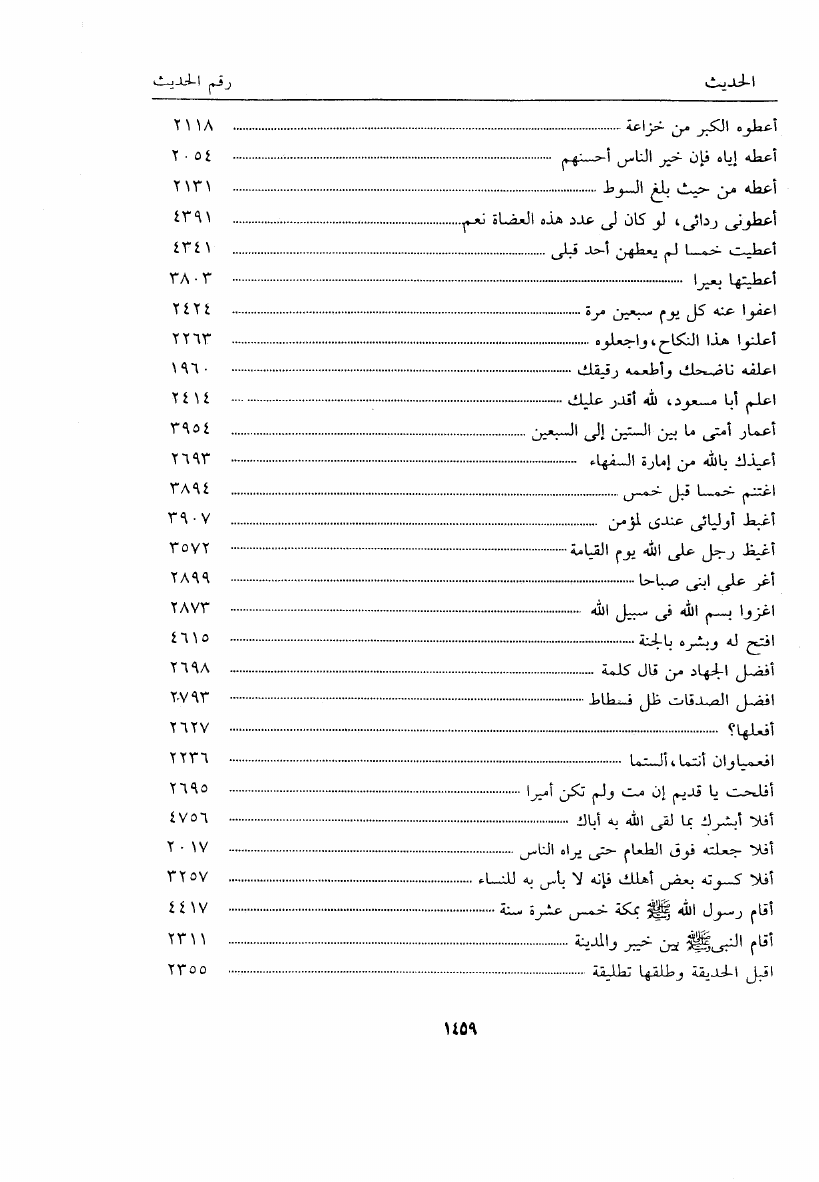 الحديث رقم الحديث
أعطوه الكبر من خزاعة ٢١١٨
أعطه إياه فإن خير الناس أحسنهم ٢٠٥٤
أعطه من حيث بلغ السوط ٢١٣١
أعطونى ردائى، لو كان لى عدد هذه العضاة نعم ٤٣٩١
أعطيت خمسا لم يعطهن أحد قبلى ٤٣٤١
أعطيتها بعيرا ٣٨٠٣
اعفوا عنه كل يوم سبعين مرة ٢٤٢٤
أعلنوا هذا النكاح، واجعلوه ٢٢٦٣
اعلفه ناضحك وأطعمه رقيقك ١٩٦٠
اعلم أبا مسعود، لله أقدر عليك ٢٤١٤
أعمار أمتى ما بين الستين إلى السبعين ٣٩٥٤
أعيذك بالله من إمارة السفهاء ٢٦٩٣
اغتنم خمسا قبل خمس ٣٨٩٤
أغبط أوليائى عندى لمؤمن ٣٩٠٧
أغيظ رجل على الله يوم القيامة ٣٥٧٢
أغر على ابنى صباحا ٢٨٩٩
اغزوا بسم الله فى سبيل الله ٢٨٧٣
افتح له وبشره بالجنة ٤٦١٥
أفضل الجهاد من قال كلمة ٢٦٩٨
افضل الصدقات ظل فسطاط ٢٧٩٣
أفعلها؟ ٢٦٢٧
افعمياوان أنتما، ألستما ٢٢٣٦
أفلحت يا قديم إن مت ولم تكن أميرا ٢٦٩٥
أفلا أبشرك بما لقى الله به أباك ٤٧٥٦
أفلا جعلته فوق الطعام حتى يراه الناس ٢٠١٧
أفلا كسوته بعض أهلك فإنه لا بأس به للنساء ٣٢٥٧
أقام رسول الله ﷺ بمكة خمس عشرة سنة ٤٤١٧
أقام النبى ﷺ بين خيبر والمدينة ٢٣١١
اقبل الحديقة وطلقها تطليقة ٢٣٥٥
١٤٥٩